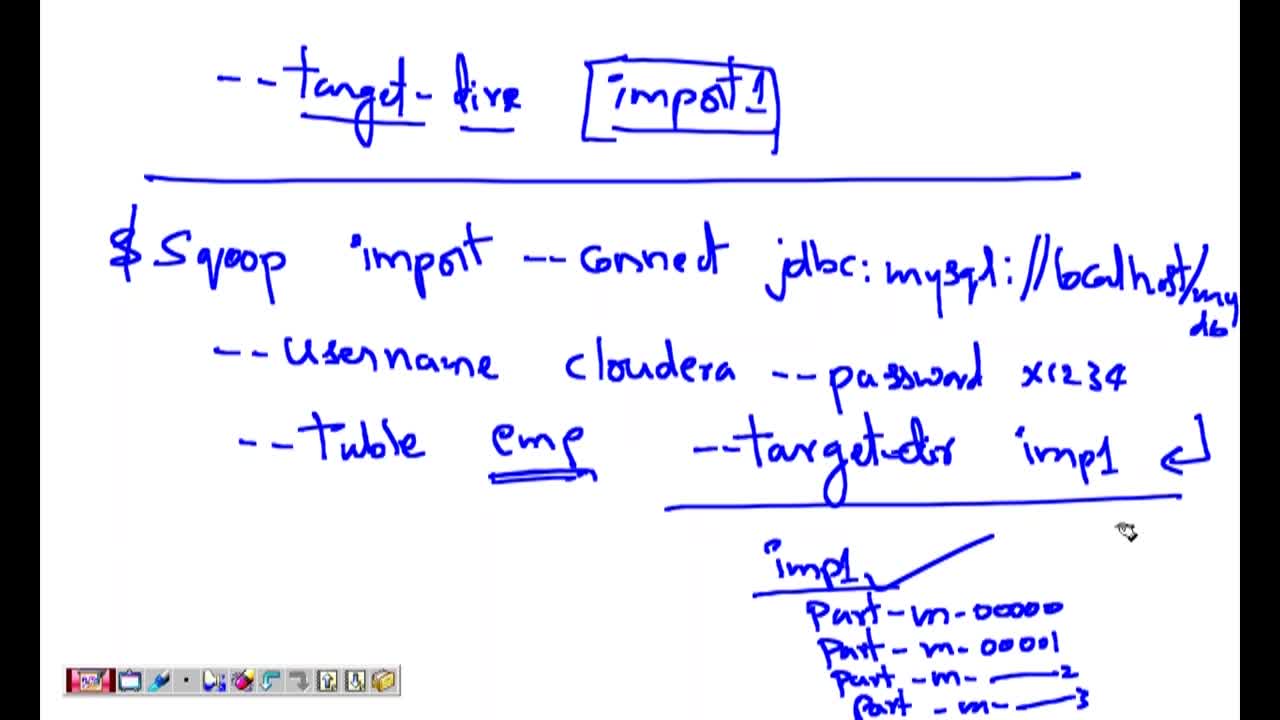 --target-dire import1
$ Sqoop import --connect jdbc:mysql://localhost/my
db
--username cloudera --password x1234
--Table emp --target-dir imp1
imp1
part-m-00000
part-m-00001
part-m-2
part-m-3